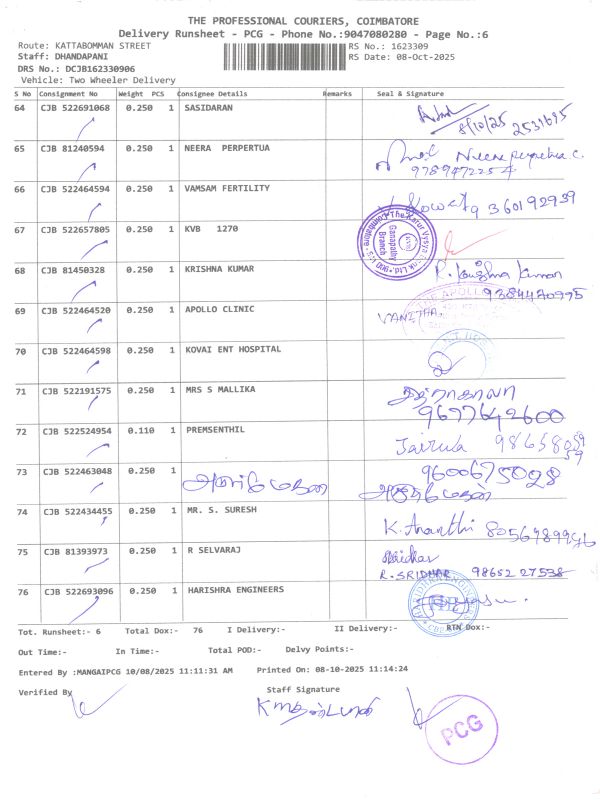 THE PROFESSIONAL COURIERS, COIMBATORE
Delivery Runsheet - PCG - Phone No.:9047080280 - Page No.:6
Route: KATTABOMMAN STREET RS No.: 1623309
Staff: DHANDAPANI RS Date: 08-Oct-2025
DRS No.: DCJB162330906
Vehicle: Two Wheeler Delivery
S No Consignment No Weight PCS Consignee Details Remarks Seal & Signature
64 CJB 522691068 0.250 1 SASIDARAN
8/10/25 2531695
65 CJB 81240594 0.250 1 NEERA PERPERTUA Neera perpetua C.
9789472254
66 CJB 522464594 0.250 1 VAMSAM FERTILITY
9360192939
67 CJB 522657805 0.250 1 KVB 1270 The Karur Vysya Bank Ltd. Ganapathy Branch
68 CJB 81450328 0.250 1 KRISHNA KUMAR R. Krishna Kumar
9384470995
69 CJB 522464520 0.250 1 APOLLO CLINIC VANITHA
70 CJB 522464598 0.250 1 KOVAI ENT HOSPITAL
71 CJB 522191575 0.250 1 MRS S MALLIKA
9677642600
72 CJB 522524954 0.110 1 PREMSENTHIL
73 CJB 522463048 0.250 1 9600675028
74 CJB 522434455 0.250 1 MR. S. SURESH K. Ananthi
75 CJB 81393973 0.250 1 R SELVARAJ Sridhar
R. SRIDHAR 98652 27538
76 CJB 522693096 0.250 1 HARISHRA ENGINEERS
Tot. Runsheet:- 6 Total Dox:- 76 I Delivery:- II Delivery:- RTN Dox:-
Out Time:- In Time:- Total POD:- Delvy Points:-
Entered By :MANGAIPCG 10/08/2025 11:11:31 AM Printed On: 08-10-2025 11:14:24
Verified By Staff Signature
PCG